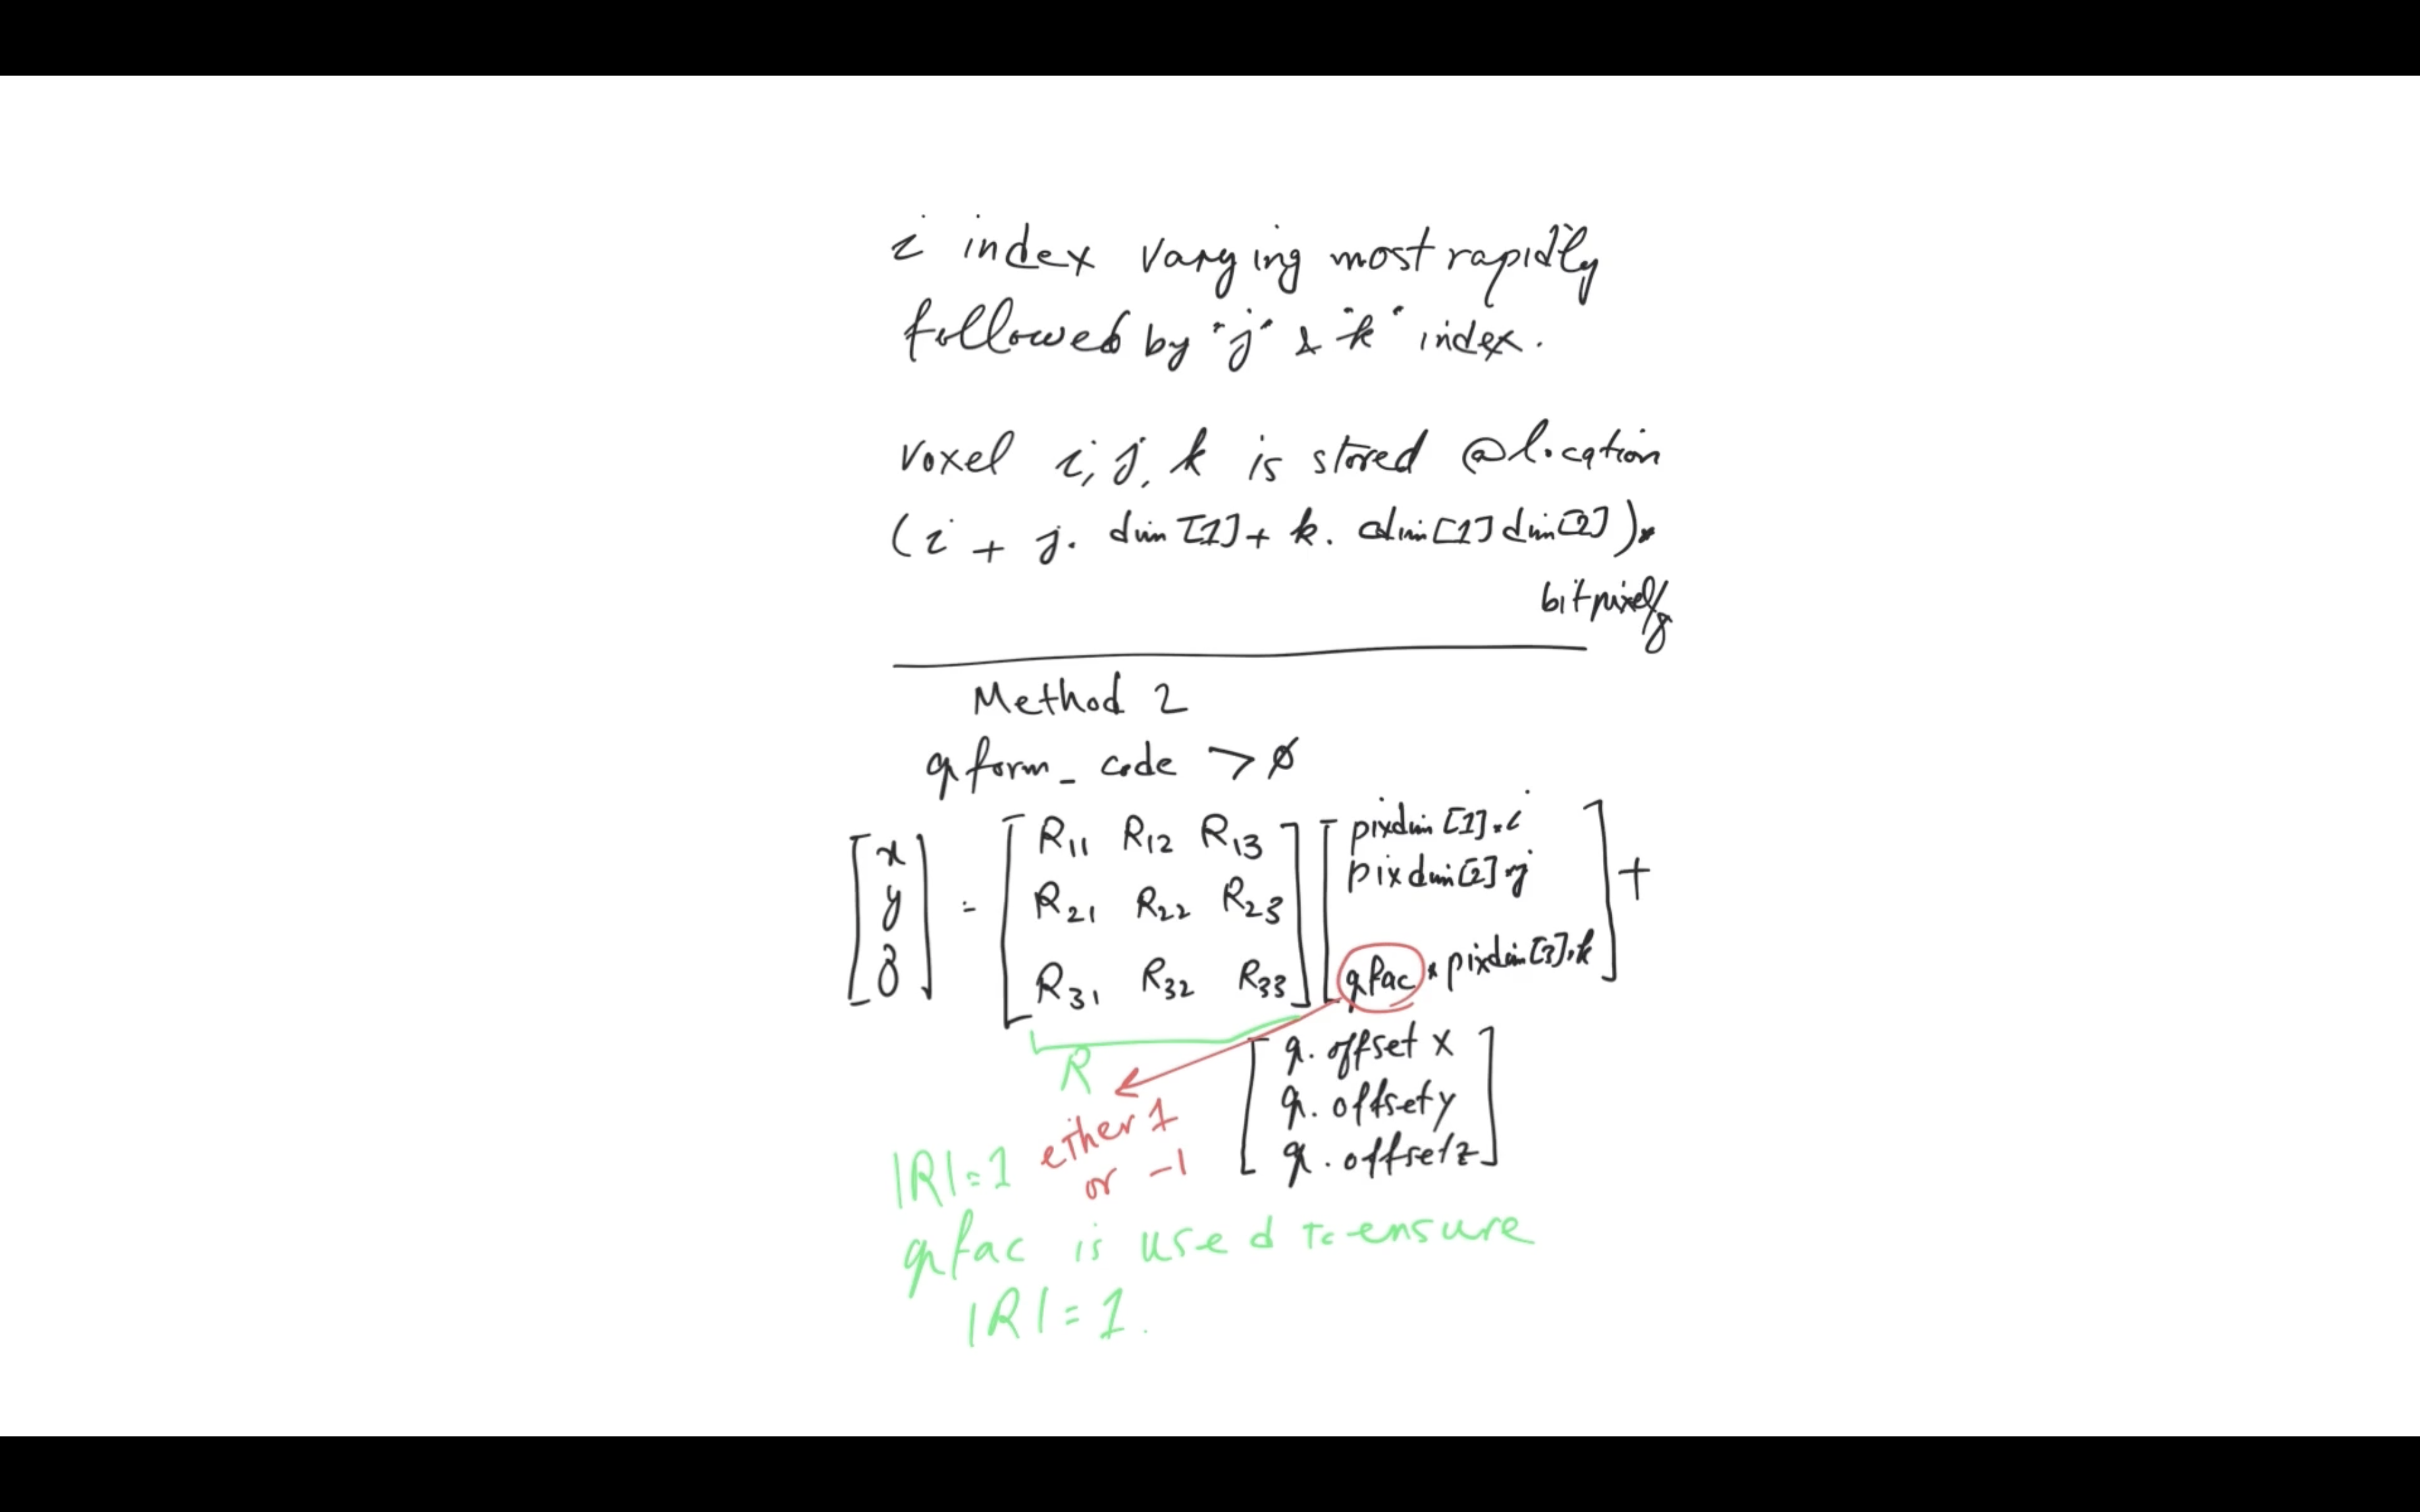 i index varying most rapidly
followed by "j" & "k" index.
voxel i, j, k is stored @location
(i + j. dim[1] + k. dim[1] dim[2]) *
bitpixel/8
Method 2
qform_code > 0
[x y z] = [R11 R12 R13 R21 R22 R23 R31 R32 R33] [pixdim[1] * i pixdim[2] * j qfac * pixdim[3] * k] +
R
[q. offset x q. offset y q. offset z]
either 1
or -1
|R| = 1
qfac is used to ensure
|R| = 1.